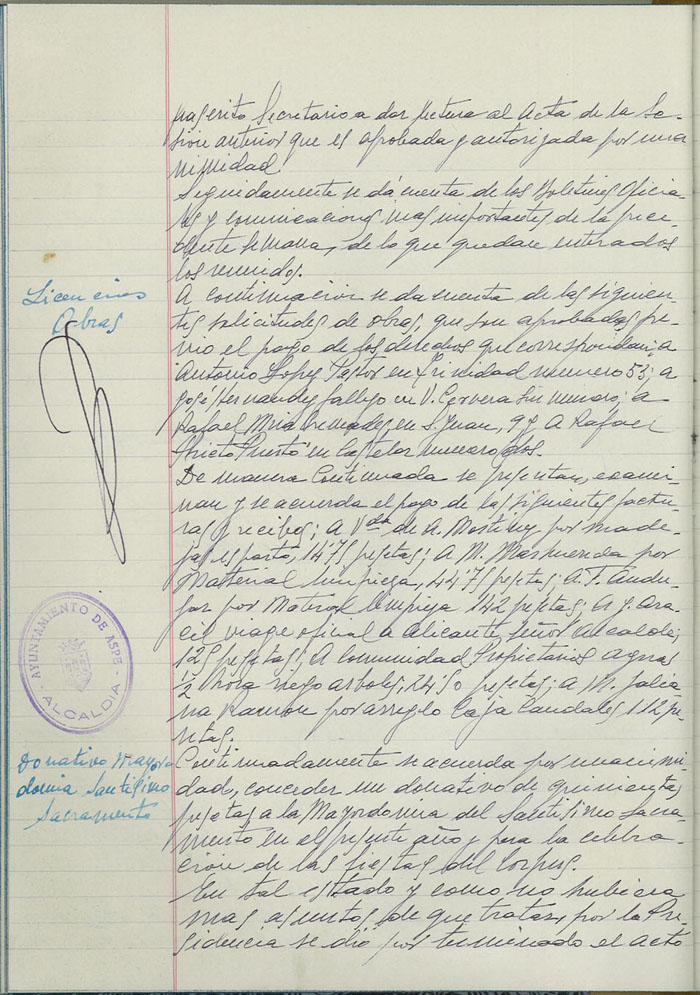 frascrito Secretario a dar lectura al Acta de la Se-
sion anterior que es aprobada y autorizada por una
nimidad.
Seguidamente se dá cuenta de los Boletines Oficia
les y comunicaciones mas importantes de la prece
dente semana, de lo que quedan enterados
los reunidos.
Licencias
Obras
A continuacion se da cuenta de las siguien-
tes solicitudes de obras, que son aprobadas pre
vio el pago de los derechos que correspondan; a
Antonio Lopez Pastor en Trinidad numero 53; a
José Fernandez Gallego en V. Cervera sin numero; a
Rafael Mira en S. Juan, 9 y A Rafael
Prieto en Castelar numero dos.
De manera Continuada se presentan, exami-
nan y se acuerda el pago de las siguientes factu-
ras y recibos; A Vda de A. Martinez por made-
jas esparto, 14'75 pesetas; A M. por
Material limpieza, 44'75 pesetas; A F. Andu-
jar por Material limpieza 142 pesetas; a J. Ara-
cil viage oficial a Alicante, señor alcalde,
125 pesetas; A Comunidad Propietarios aguas
1/2 hora riego arboles, 24'50 pesetas; a M. Julia
na Ramon por arreglo Caja Caudales 112 pe-
setas.
AYUNTAMIENTO DE ASPE
- ALCALDIA -
Donativo Mayor
domia Santisimo
Sacramento
Continuadamente se acuerda por unanimi
dad, conceder un donativo de quinientas
pesetas a la Mayordomia del Santisimo Sacra-
mento en el presente año y para la celebra-
ción de las fiestas del Corpus.
En tal estado y como no hubiera
mas asuntos de que tratar, por la Pre-
sidencia se dió por terminado el acto